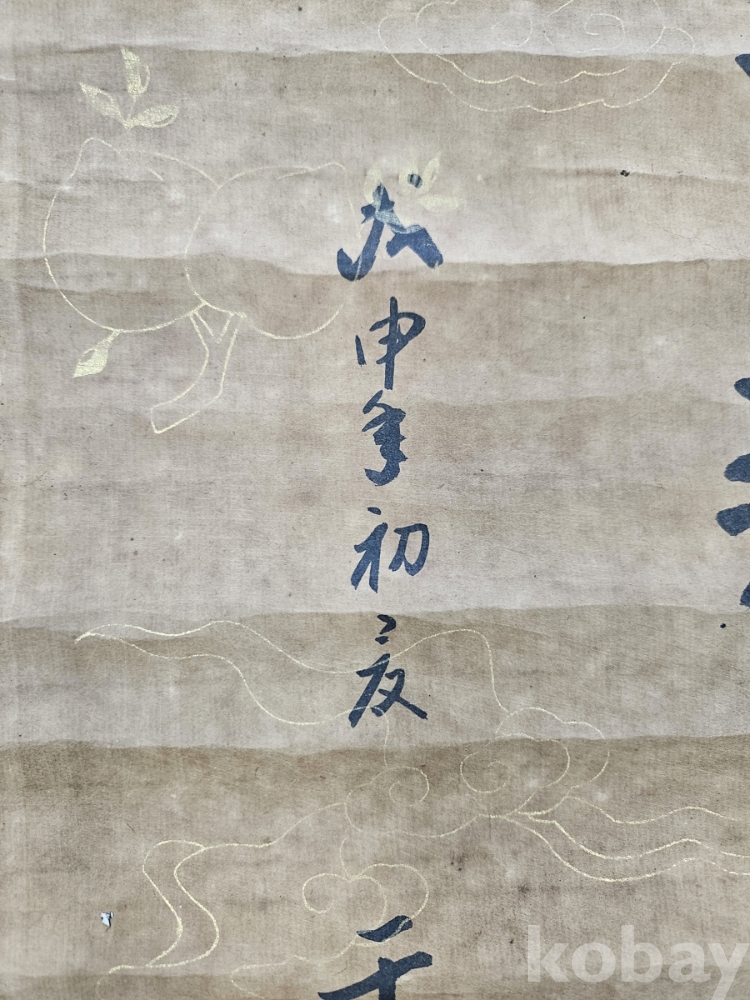 戊申年初夏
kobay